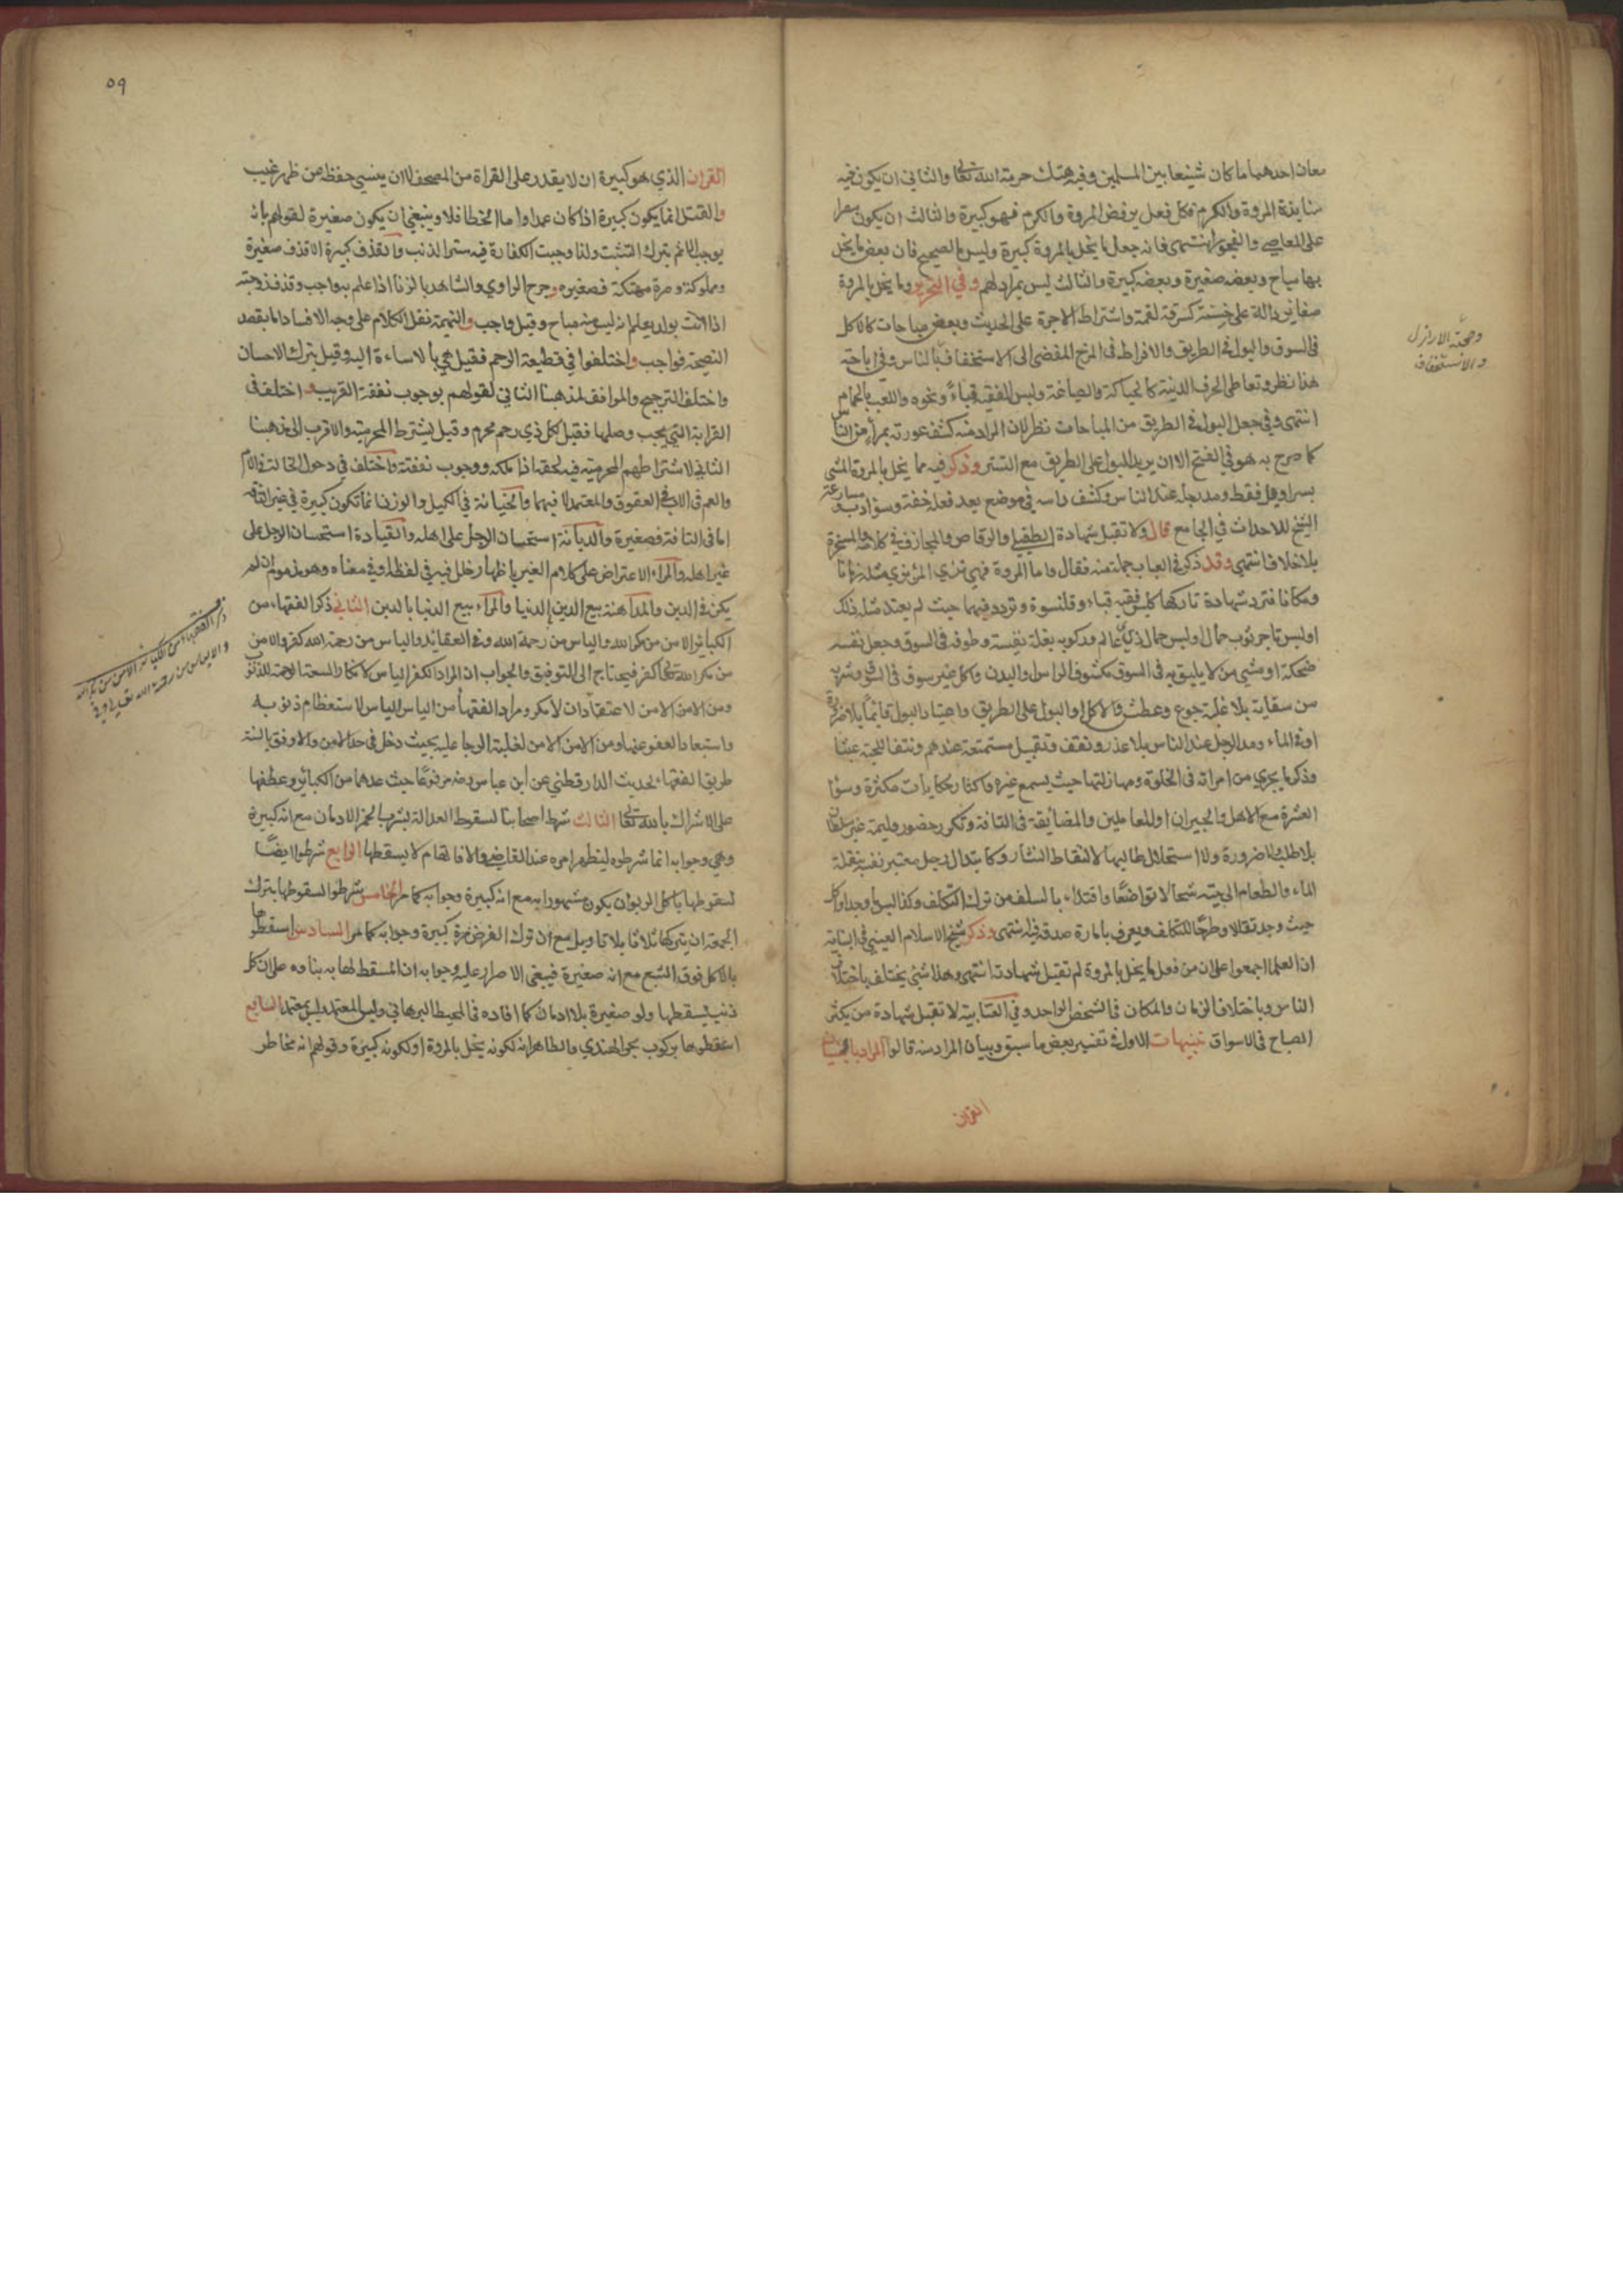 معان احدهما ما كان شنيعا بين المسلمين وفيه هتك حرمة الله تعالى والثاني ان يكون فيه
منابذة المروة والكرم فكل فعل يرفض المروة والكرم فهو كبيرة والثالث ان يكون مصرا
على المعاصي والفجور انتهى فانه جعل ما يخل بالمروة كبيرة وليس بالصحيح فان بعض ما يخل
بها مباح وبعضه صغيرة وبعضه كبيرة والثالث ليس بمراد لهم وفي التحرير وما يخل بالمروة
صغاير دالة على خسة كسرقة لقمة واشتراط الاجرة على الحديث وبعض مباحات كالاكل
في السوق والبول في الطريق والافراط في المزح المفضي الى الاستخفاف بالناس وفي اباحة
هذا نظر وتعاطى الحرف الدنية كالحياكة والصياغة ولبس الفقيه قباء ونحوه واللعب بالحمام
انتهى وفي جعل البول في الطريق من المباحات نظر لان المراد منه كشف عورته بمرأ من الناس
كما صرح به هو في الفتح الا ان يريد البول على الطريق مع التستر وذكر فيه مما يخل بالمروة المشي
بسراويل فقط ومد رجله عند الناس وكشف راسه في موضع يعد فعله خفة وسؤ ادب ومسارعة
الشيخ للاحداث في الجامع قال ولا تقبل شهادة الطفيلي والرقاص والمجازف في كلامه والمسخرة
بلا خلاف انتهى وقد ذكر في العباب جملة منه فقال واما المروة فهي تزي المرء بزي مثله زمانا
ومكانا فترد شهادة تاركها كلبس فقيه قباء وقلنسوة وتردد فيهما حيث لم يعتد مثله ذلك
او لبس تاجر ثوب حمال او لبس جمال زي عالم وركوبه بغلة نفيسة وطوفه في السوق وجعل نفسه
ضحكة او مشى من لا يليق به في السوق مكشوف الراس والبدن واكل غير سوقي في السوق وشربه
من سقاية بلا غلبة جوع وعطش والاكل او البول على الطريق واعتياد البول قائما بلا ضرورة
او في الماء ومد الرجل عند الناس بلا عذر وتقبيل مستمتعة عندهم ونتف اللحية عبثا
وذكر ما يجري من امراته في الخلوة ومهازلتها حيث يسمع غيره واكثار حكايات مكثرة وسؤ
العشرة مع الاهل والجيران او المعاملين والمضايقة في التافه وتكرر حضور وليمة غير سلطان
بلا طلب ولا ضرورة ولا استحلال طالبها لالتقاط النثار وكابتذال رجل معتبر نفسه بنقله
الماء والطعام الى بيته شحا لا تواضعا واقتداء بالسلف من ترك التكلف وكذا لبس ما وجد واكل
حيث وجد تقللا وطرحا للتكلف ويعرف بامارة صدقه فيه انتهى وذكر شيخ الاسلام العيني في البناية
ان العلما اجمعوا على ان من فعل ما يخل بالمروة لم تقبل شهادته انتهى وهذا شيء يختلف باختلاف
الناس وباختلاف الزمان والمكان في الشخص الواحد وفي العتابية لا تقبل شهادة من يكثر
الصياح في الاسواق تنبيهات الاول في تفسير بعض ما سبق وبيان المراد منه قالوا المراد بنسيان
القران
وصحبة الاراذل
والاستخفاف
٥٩
القران الذي هو كبيرة ان لا يقدر على القراة من المصحف لا ان ينسى حفظه من ظهر غيب
والقتل انما يكون كبيرة اذا كان عمدا واما الخطا فلا وينبغي ان يكون صغيرة لقولهم بانه
يوجب الاثم بترك التثبت ولذا وجبت الكفارة فيه ستر الذنب والقذف كبيرة الا قذف صغيرة
ومملوكة وحرة مهتكة فصغيره وجرح الراوي والشاهد بالزنا اذا علم به واجب وقذف زوجته
اذا اتت بولد يعلم انه ليس منه مباح وقيل واجب والنميمة نقل الكلام على وجه الافساد اما بقصد
النصيحة فواجب واختلفوا في قطيعة الرحم فقيل هي بالاساءة اليه وقيل بترك الاحسان
واختلف الترجيح والموافق لمذهبنا الثاني لقولهم بوجوب نفقة القريب واختلف في
القرابة التي يجب وصلها فقيل كل ذي رحم محرم وقيل لا يشترط المحرمية والاقرب الى مذهبنا
الثاني لاشتراطهم المحرمية فيه لعتقه اذا ملكه ووجوب نفقته واختلف في دخول الخالة في الام
والعم في الاب في العقوق والمعتمد لا فيهما والخيانة في الكيل والوزن انما تكون كبيرة في غير التافه
اما في التافه فصغيرة والدياثة استحسان الرجل على اهله والقيادة استحسان الرجل على
غير اهله والمراء الاعتراض على كلام الغير باظهار خلل فيه في لفظه او في معناه وهو مذموم ان لم
يكن في الدين والمداهنة بيع الدين بالدنيا والمراء بيع الدنيا بالدين الثاني ذكر الفقهاء من
الكبائر الامن من مكر الله والياس من رحمة الله وفي العقائد والياس من رحمة الله كفر والامن
من مكر الله تعالى كفر فيحتاج الى التوفيق والجواب ان المراد الكفر الياس لانكار السعة الرحمة للذنوب
ومن الامن الامن لاعتقاد ان لا مكر ومراد الفقهأ من الياس الياس لاستعظام ذنوبه
واستبعاد العفو عنها ومن الامن الامن لغلبة الرجا عليه بحيث دخل في حد الامن والاوفق بالسنة
طريق الفقهاء لحديث الدار قطني عن ابن عباس رضه مرفوعا حيث عدهما من الكبائر وعطفها
على الاشراك بالله تعالى الثالث شرط اصحابنا لسقوط العدالة بشرب الخمر الادمان مع انه كبيرة
وهي وجوابه انما شرطوه ليظهر امره عند القاضي والا فالاتهام لا يسقطها الرابع شرطوا ايضا
لسقوطها باكل الربوا ان يكون مشهورا به مع انه كبيرة وجوابه كما مر الخامس شرطوا لسقوطها بترك
الجمعة ان يتركها ثلاثا بلا تاويل مع ان ترك الفرض مرة كبيرة وجوابه كما مر السادس اسقطوها
بالاكل فوق الشبع مع انه صغيرة فينبغي الاصرار عليه وجوابه ان المسقط لها به بناه على ان كل
ذنب يسقطها ولو صغيرة بلا ادمان كما افاده في المحيط البرهاني وليس المعتمد وليس بمعتمد السابع
اسقطوها بركوب بحر الهندي والظاهر انه لكونه يخل بالمروة او لكونه كبيرة وقولهم انه مخاطر
ذكر الفقهاء من الكبائر الامن من مكر الله
والاياس من رحمة الله تعالى وفي